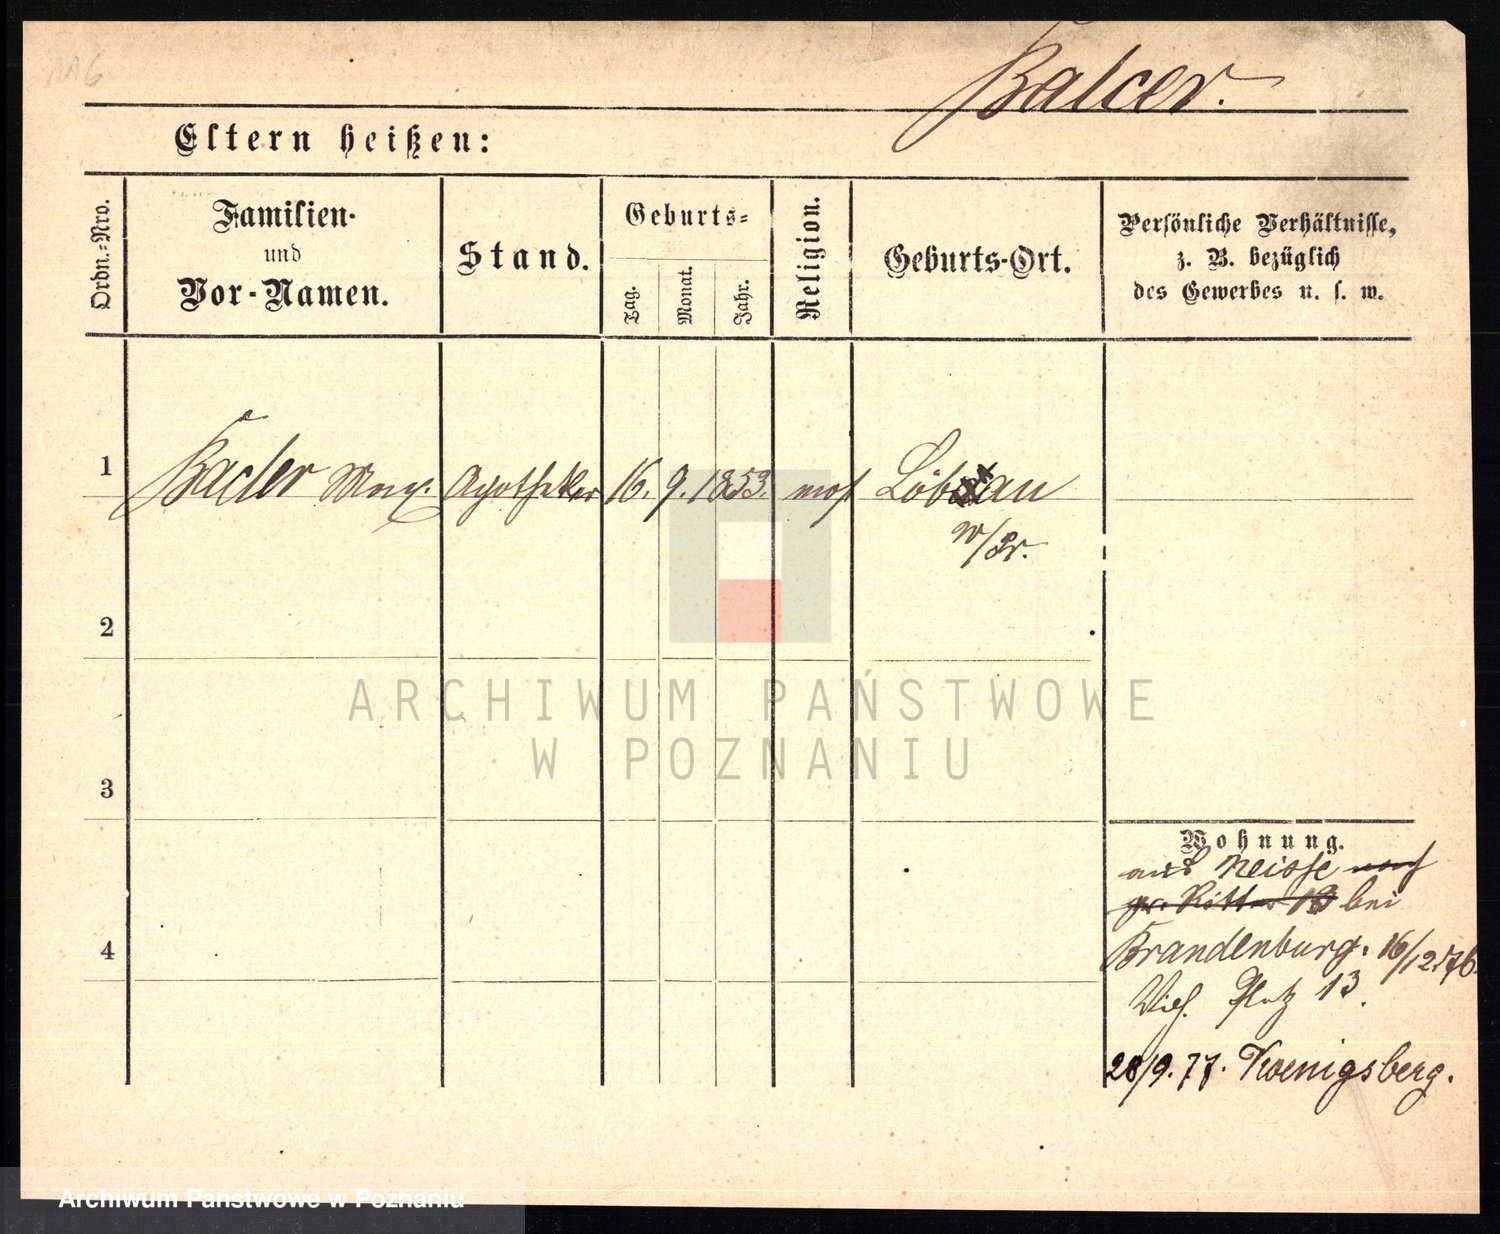 116
Balcer.
Eltern heißen:
Ordn.-Nro.
Familien- und Vor-Namen.
Stand.
Geburts-
Tag.
Monat.
Jahr.
Religion.
Geburts-Ort.
Persönliche Verhältnisse,
z. B. bezüglich
des Gewerbes u. s. w.
1 Max. Apotheker 16. 9. 1853. mos Löbau
w/Pr.
2
ARCHIWUM PAŃSTWOWE
W POZNANIU
3
4
Wohnung.
aus Neisse nach
gr. Ritter 13 bei
Brandenburg. 16/12.76.
Wilh. Platz 13.
28/9.77. Koenigsberg.
Archiwum Państwowe w Poznaniu